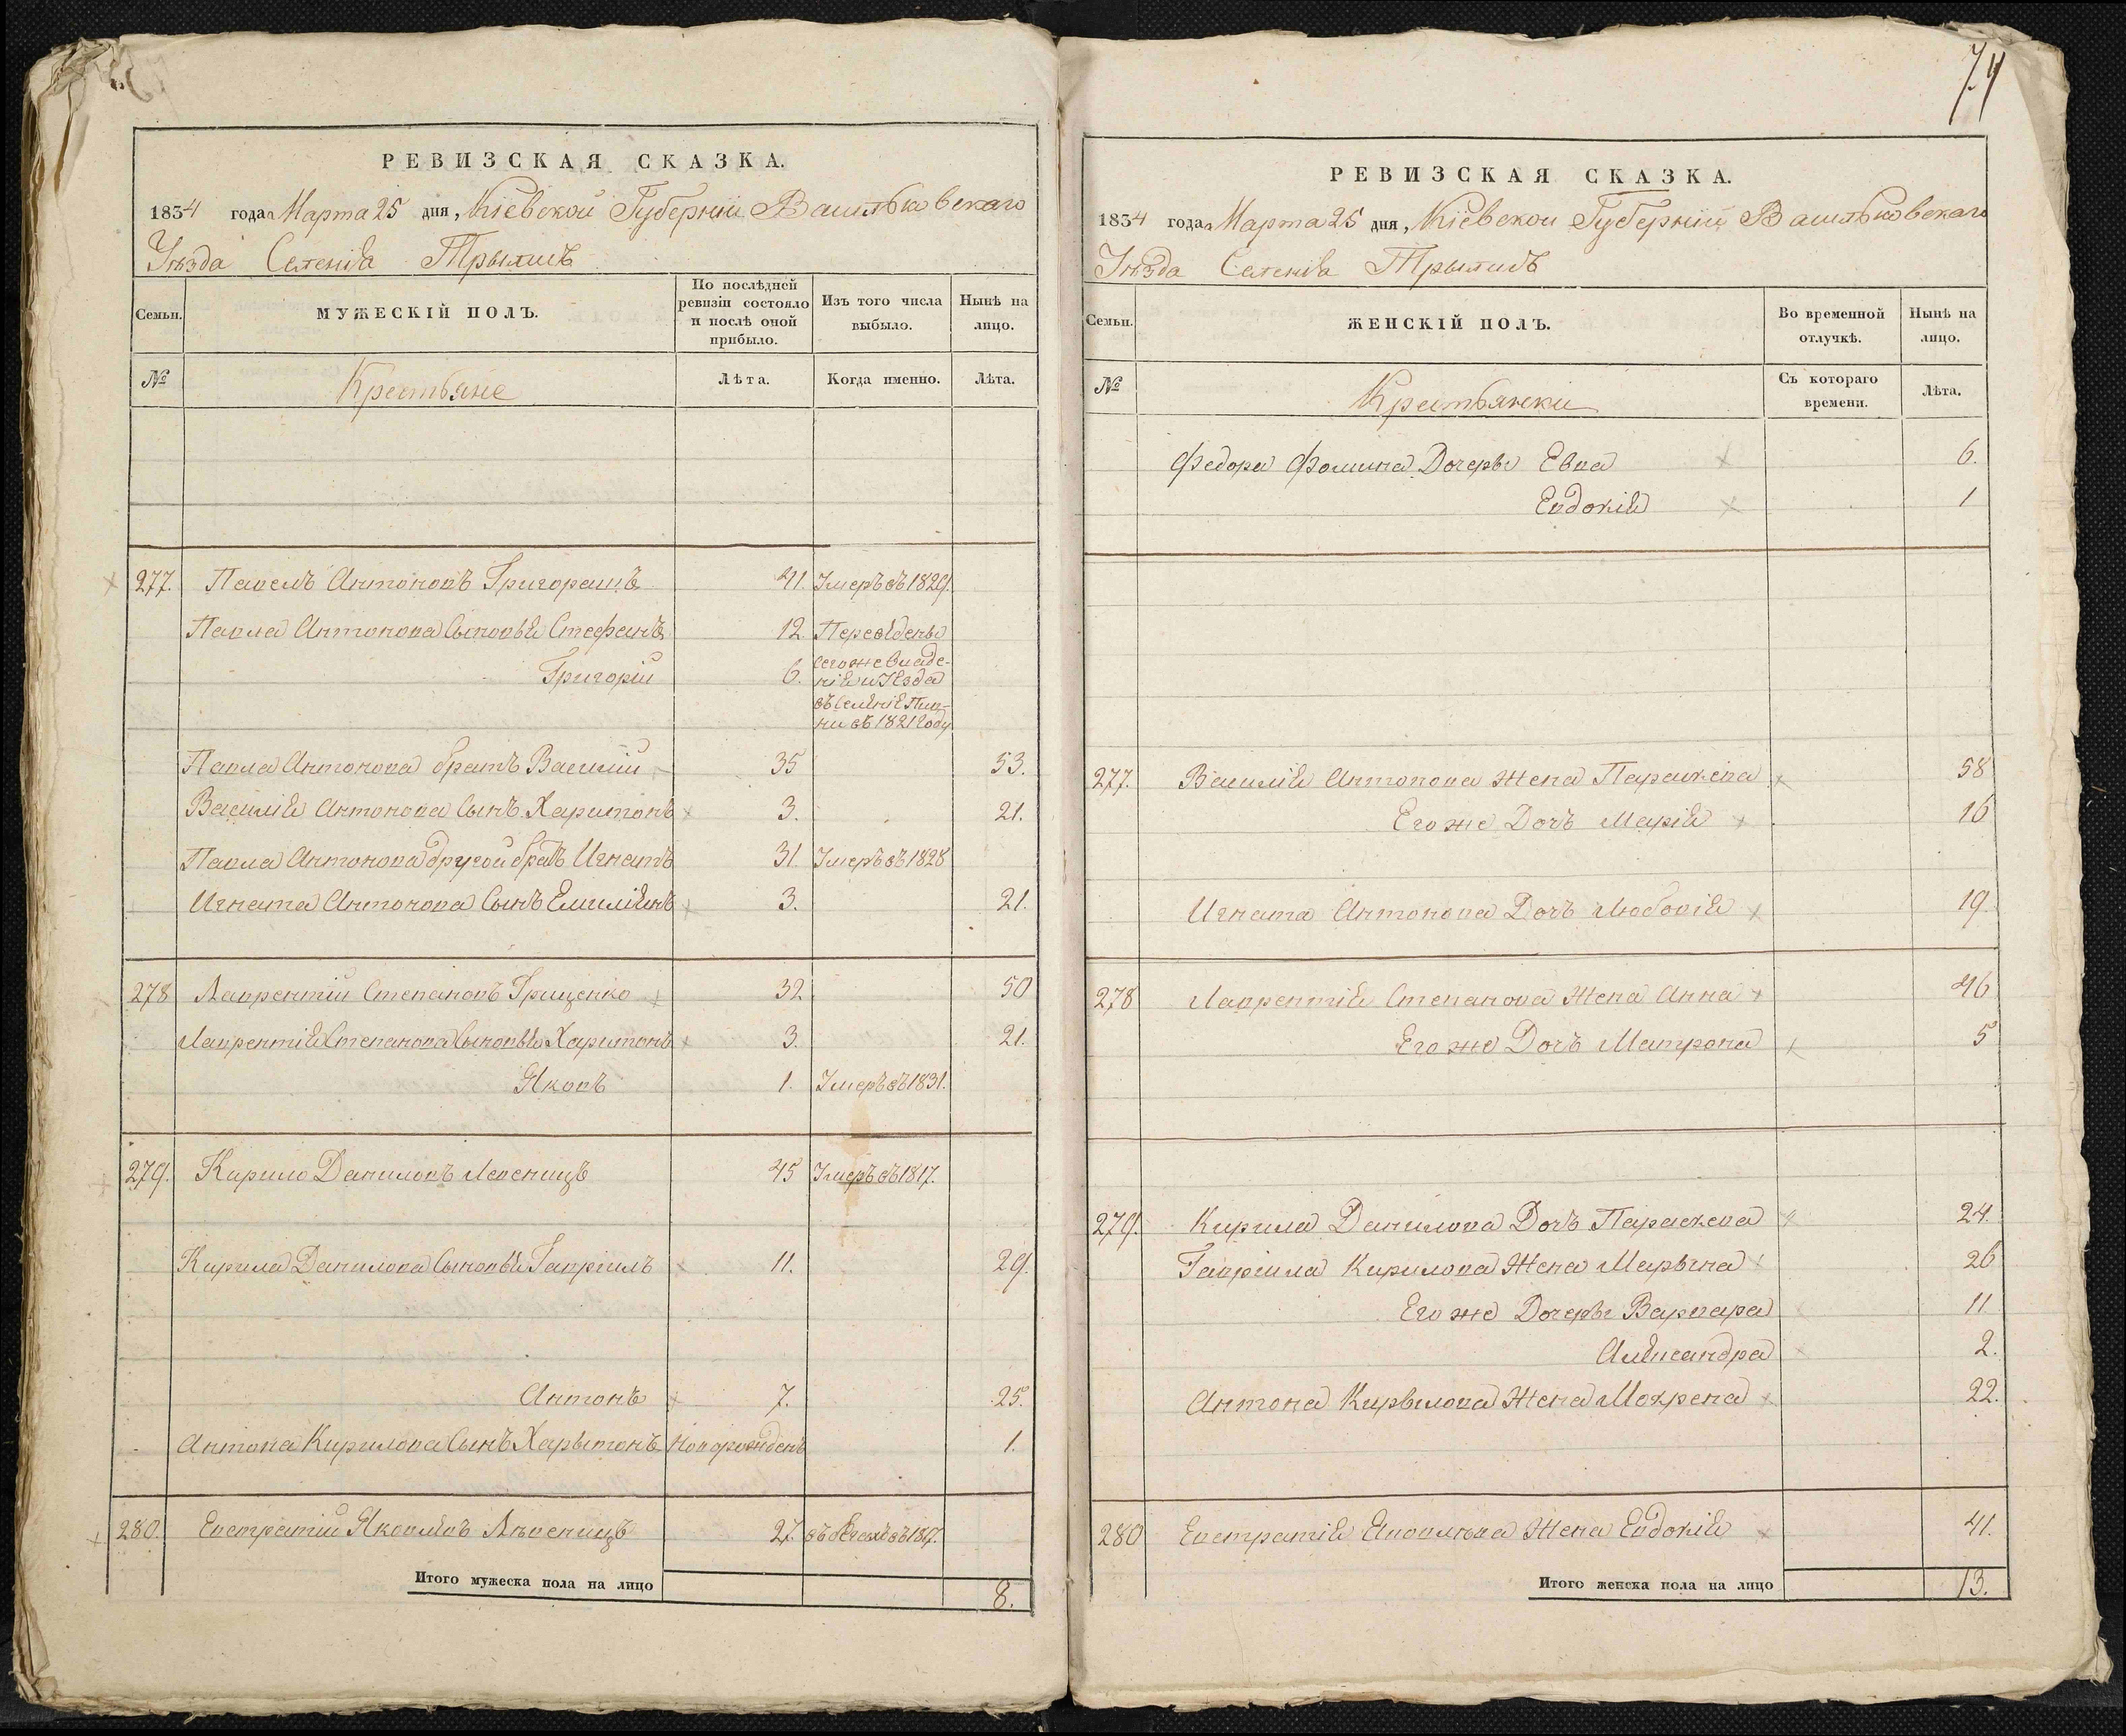 РЕВИЗСКАЯ СКАЗКА.
1834 года Марта 25 дня, Кіевской Губерніи Васильковскаго
Уѣзда Селенія Трылисъ
Семьи.
МУЖЕСКІЙ ПОЛЪ.
По послѣдней ревизіи состояло и послѣ оной прибыло.
Изъ того числа выбыло.
Нынѣ на лицо.
№
Крестьяне
Лѣта.
Когда именно.
Лѣта.
277. Павелъ Антоновъ Григорашъ 41. Умеръ въ 1829.
Павла Антонова Сыновья Стефанъ 12. Переведены
Григорій 6. сегоже владе-
нія и Уѣзда
въ Селеніе
ни въ 1821 Году
Павла Антонова братъ Василій 35 53.
Василія Антонова Сынъ Харитонъ 3. 21.
Павла Антонова другой братъ Игнатъ 31. Умеръ въ 1828
Игната Антонова Сынъ Емиліянъ 3. 21.
278 Лаврентій Степановъ Гриценко 32 50
Лаврентія Степанова Сыновья Харитонъ 3. 21.
Яковъ 1. Умеръ въ 1831.
279. Кирило Даниловъ Левсницъ 45 Умеръ въ 1817.
Кирила Данилова Сыновья Гавріилъ 11. 29.
Антонъ 7. 25.
Антона Кирилова Сынъ Харытонъ Новорожденъ 1.
280. Евстратій Яковлевъ 27. въ бѣгахъ въ 1817.
Итого мужеска пола на лицо 8.
74
РЕВИЗСКАЯ СКАЗКА.
1834 года Марта 25 дня, Кіевской Губерніи Васильковскаго
Уѣзда Селенія Трылисъ
Семьи.
ЖЕНСКІЙ ПОЛЪ.
Во временной отлучкѣ.
Нынѣ на лицо.
№
Крестьянки
Съ котораго времени.
Лѣта.
Федора Фомина Дочеры Евва 6.
Евдокія 1
277. Василія Антонова Жена Параскева 58
Его же Дочъ Марія 16
Игната Антонова Дочъ Любовія 19.
278 Лаврентія Степанова Жена Анна 46
Его же Дочъ Матрона 5
279. Кирила Данилова Дочъ Параскева 24.
Гавріила Кирилова Жена Марьяна 26
Его же Дочеры Варвара 11
Александра 2.
Антона Кирылова Жена Мокрена 22.
280 Евстратія Яковлева Жена Евдокія 41.
Итого женска пола на лицо 13.